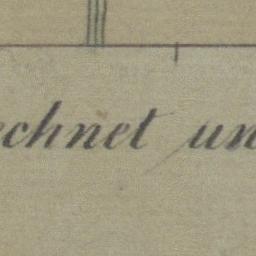 echnet un